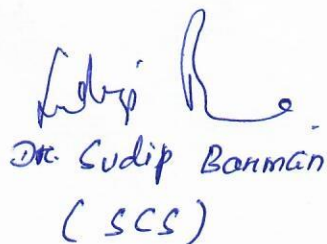 Dr. Sudip Barman
(SCS)